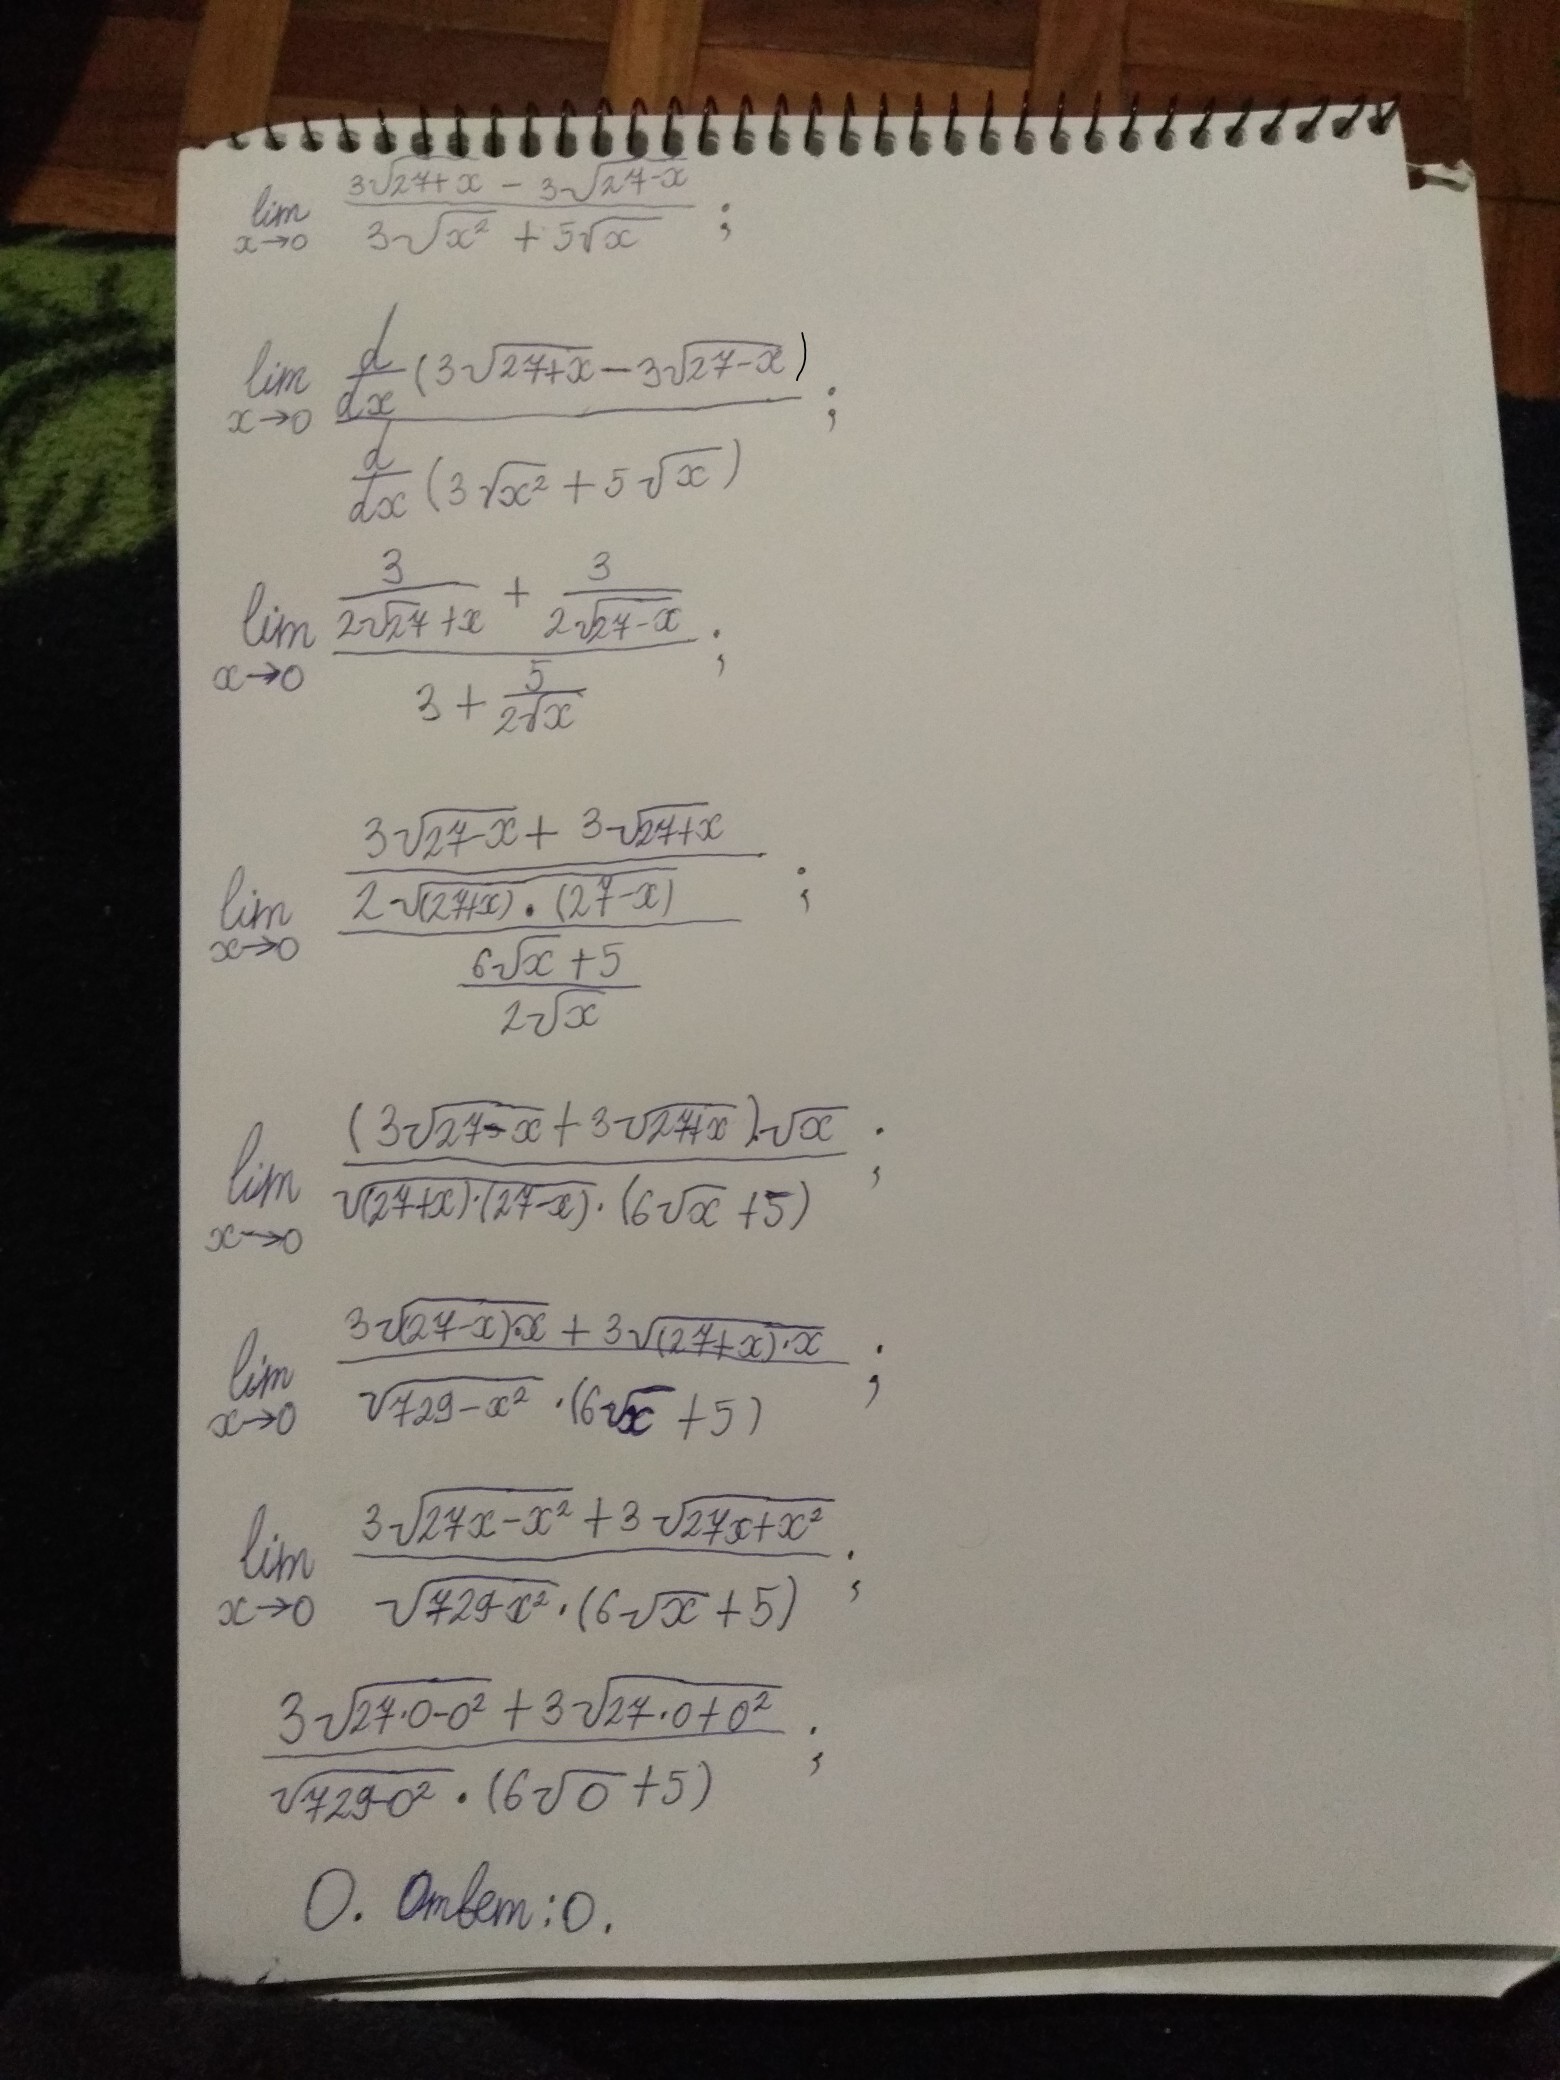 lim x→0 (3√(27+x) − 3√(27−x)) / (3√(x²) + 5√x) ;
lim x→0 (d/dx (3√(27+x) − 3√(27−x))) / (d/dx (3√(x²) + 5√x)) ;
lim x→0 (3/(2√27+x) + 3/(2√(27−x))) / (3 + 5/(2√x)) ;
lim x→0 ((3√(27−x) + 3√(27+x)) / (2√((27+x)·(27−x)))) / ((6√x + 5) / (2√x)) ;
lim x→0 ((3√(27−x) + 3√(27+x))·√x) / (√((27+x)·(27−x))·(6√x + 5)) ;
lim x→0 (3√((27−x)·x) + 3√((27+x)·x)) / (√(729−x²)·(6√x + 5)) ;
lim x→0 (3√(27x−x²) + 3√(27x+x²)) / (√(729−x²)·(6√x + 5)) ;
(3√(27·0−0²) + 3√(27·0+0²)) / (√(729−0²)·(6√0 + 5)) ;
0. Ответ: 0.